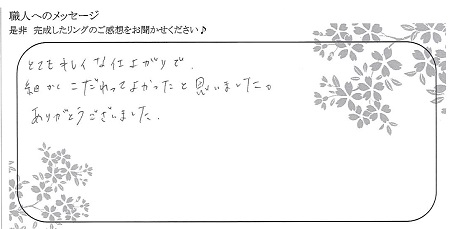 職人へのメッセージ
是非 完成したリングのご感想をお聞かせください♪
とてもキレイな仕上がりで、
細かくこだわってよかったと思いました。
ありがとうございました。